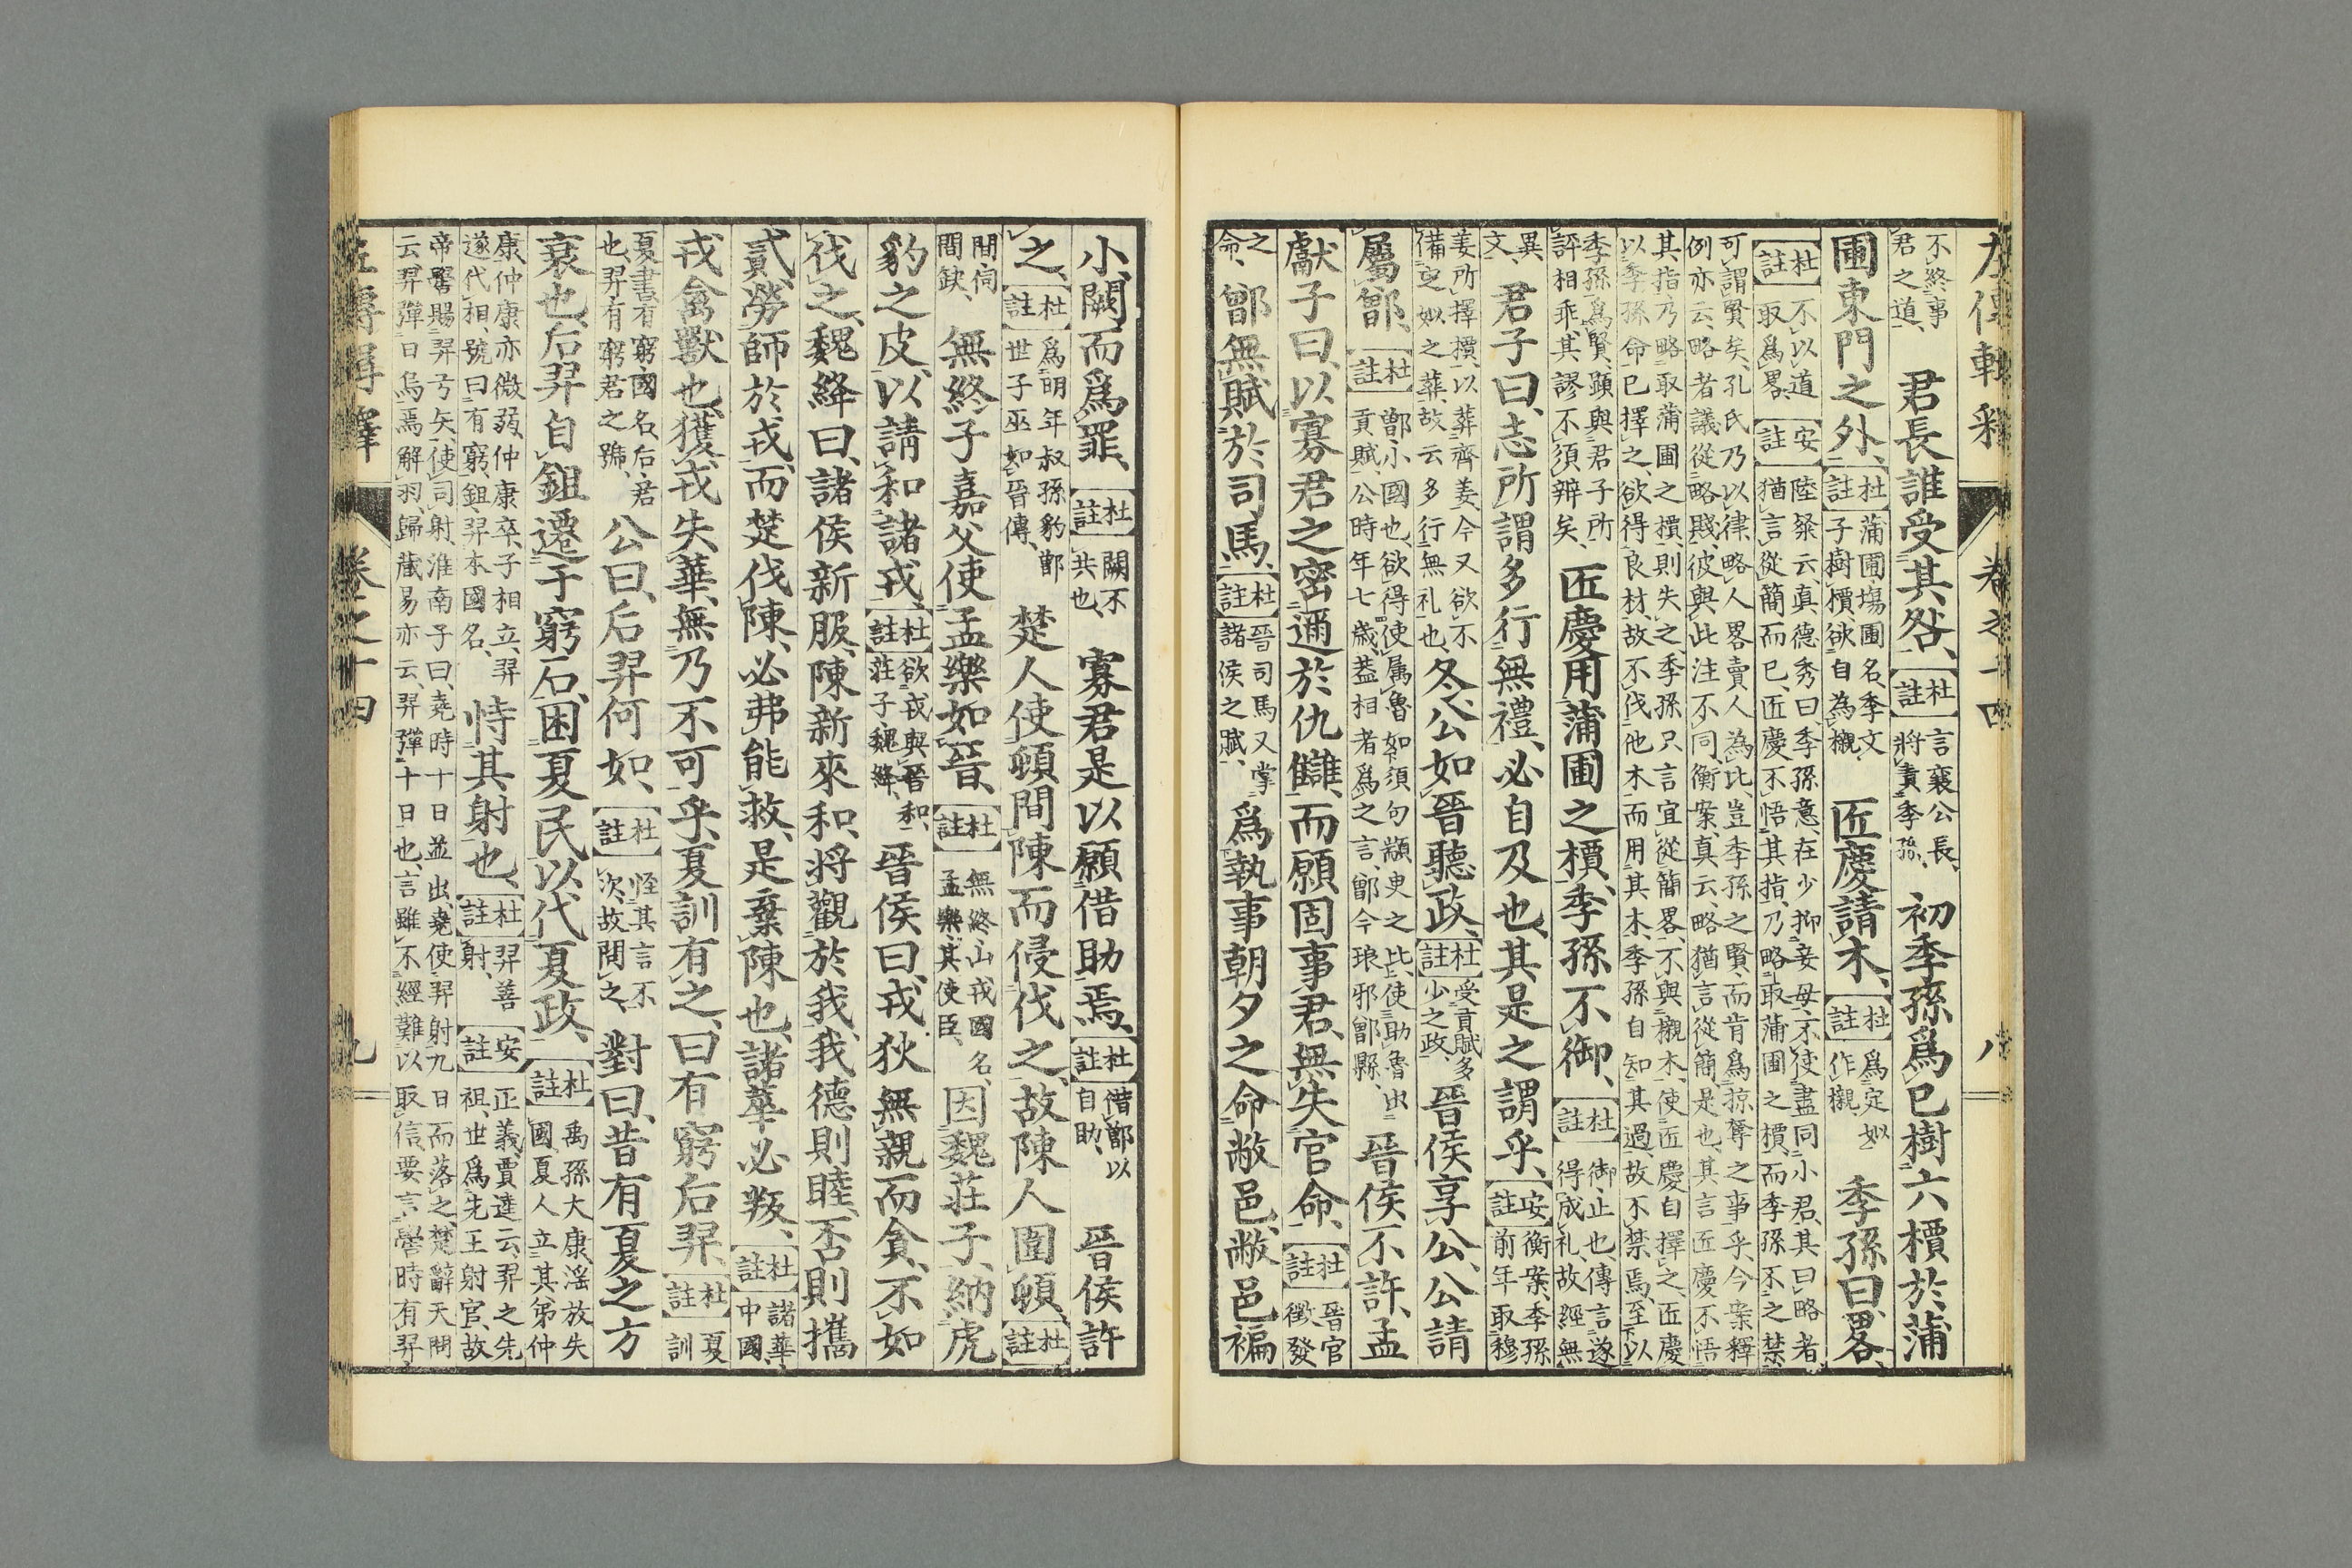 左傳輯釋 卷之十四 八
不終事君之道、君長誰受其咎、杜註言襄公長、將責季孫、初季孫爲己樹六檟於蒲
圃東門之外、杜註蒲圃塲圃名、季文子樹檟、欲自為櫬、匠慶請木、杜註爲定姒作櫬、季孫曰、畧、
杜註不以道取爲畧、安註陸粲云、真德秀曰、季孫意、在少抑妾母、不使盡同小君、其曰略者、猶言從簡而已、匠慶不悟其指、乃略取蒲圃之檟、而季孫不之禁、
可謂賢矣、孔氏乃以律略人畧賣人為比、豈季孫之賢、而肯爲掠奪之事乎、今案釋例亦云、略者議從略賤、彼與此注不同、衡案、真云、略猶言從簡、是也、其言匠慶不悟
其指、乃略取蒲圃之檟、則失之、季孫只言宜從簡畧、不與櫬木、使匠慶自擇之、匠慶以季孫命已擇之、欲得良材、故不伐他木而用其木、季孫自知其過、故不禁焉、至以
季孫爲賢、顕與君子所評相乖、其謬不須辨矣、匠慶用蒲圃之檟、季孫不御、杜註御、止也、傳言遂得成礼、故經無
異文、君子曰、志所謂多行無禮、必自及也、其是之謂乎、安註衡案、季孫前年取穆
姜所擇檟、以葬齊姜、今又欲不備定姒之葬、故云多行無礼也、冬、公如晉聽政、杜註受貢賦多少之政、晉侯享公、公請
屬鄫、杜註鄫、小國也、欲得使属魯、如須句顓臾之比、使助魯出貢賦、公時年七歳、葢相者爲之言、鄫今琅邪鄫縣、晉侯不許、孟
獻子曰、以寡君之密邇於仇讎、而願固事君、無失官命、杜註晉官徵發
之命、鄫無賦於司馬、杜註晉司馬又掌諸侯之賦、爲執事朝夕之命敝邑、敝邑褊
小、闕而爲罪、杜註闕不共也、寡君是以願借助焉、杜註借鄫以自助、晉侯許
之、杜註爲明年叔孫豹鄫世子巫如晉傳、楚人使頓間陳而侵伐之、故陳人圍頓、杜註
間伺間缺、無終子嘉父使孟樂如晉、杜註無終山戎國名、孟樂、其使臣、因魏莊子、納虎
豹之皮、以請和諸戎、杜註欲戎與晉和、莊子魏絳、晉侯曰、戎狄無親而貪、不如
伐之、魏絳曰、諸侯新服、陳新來和、將觀於我、我德則睦、否則攜
貳、勞師於戎、而楚伐陳、必弗能救、是棄陳也、諸華必叛、杜註諸華、中國、
戎禽獸也、獲戎失華、無乃不可乎、夏訓有之、曰有窮后羿、杜註夏訓
夏書、有窮、國名、后君也、羿有窮君之號、公曰、后羿何如、杜註怪其言不次、故問之、對曰、昔有夏之方
衰也、后羿自鉏遷于窮石、因夏民以代夏政、杜註禹孫大康、淫放失國、夏人立其弟仲
康、仲康亦微弱、仲康卒、子相立、羿遂代相、號曰有窮、鉏、羿本國名、恃其射也、杜註羿善射、安註正義、賈逵云、羿之先祖、世爲先王射官、故
帝嚳賜羿弓矢、使司射、淮南子曰、堯時十日並出、堯使羿射九日而落之、楚辭天問云、羿彈日烏焉解羽、歸藏易亦云、羿彈十日也、言雖不經難以取信、要言嚳時有羿、
左傳輯釋 卷之十四 九